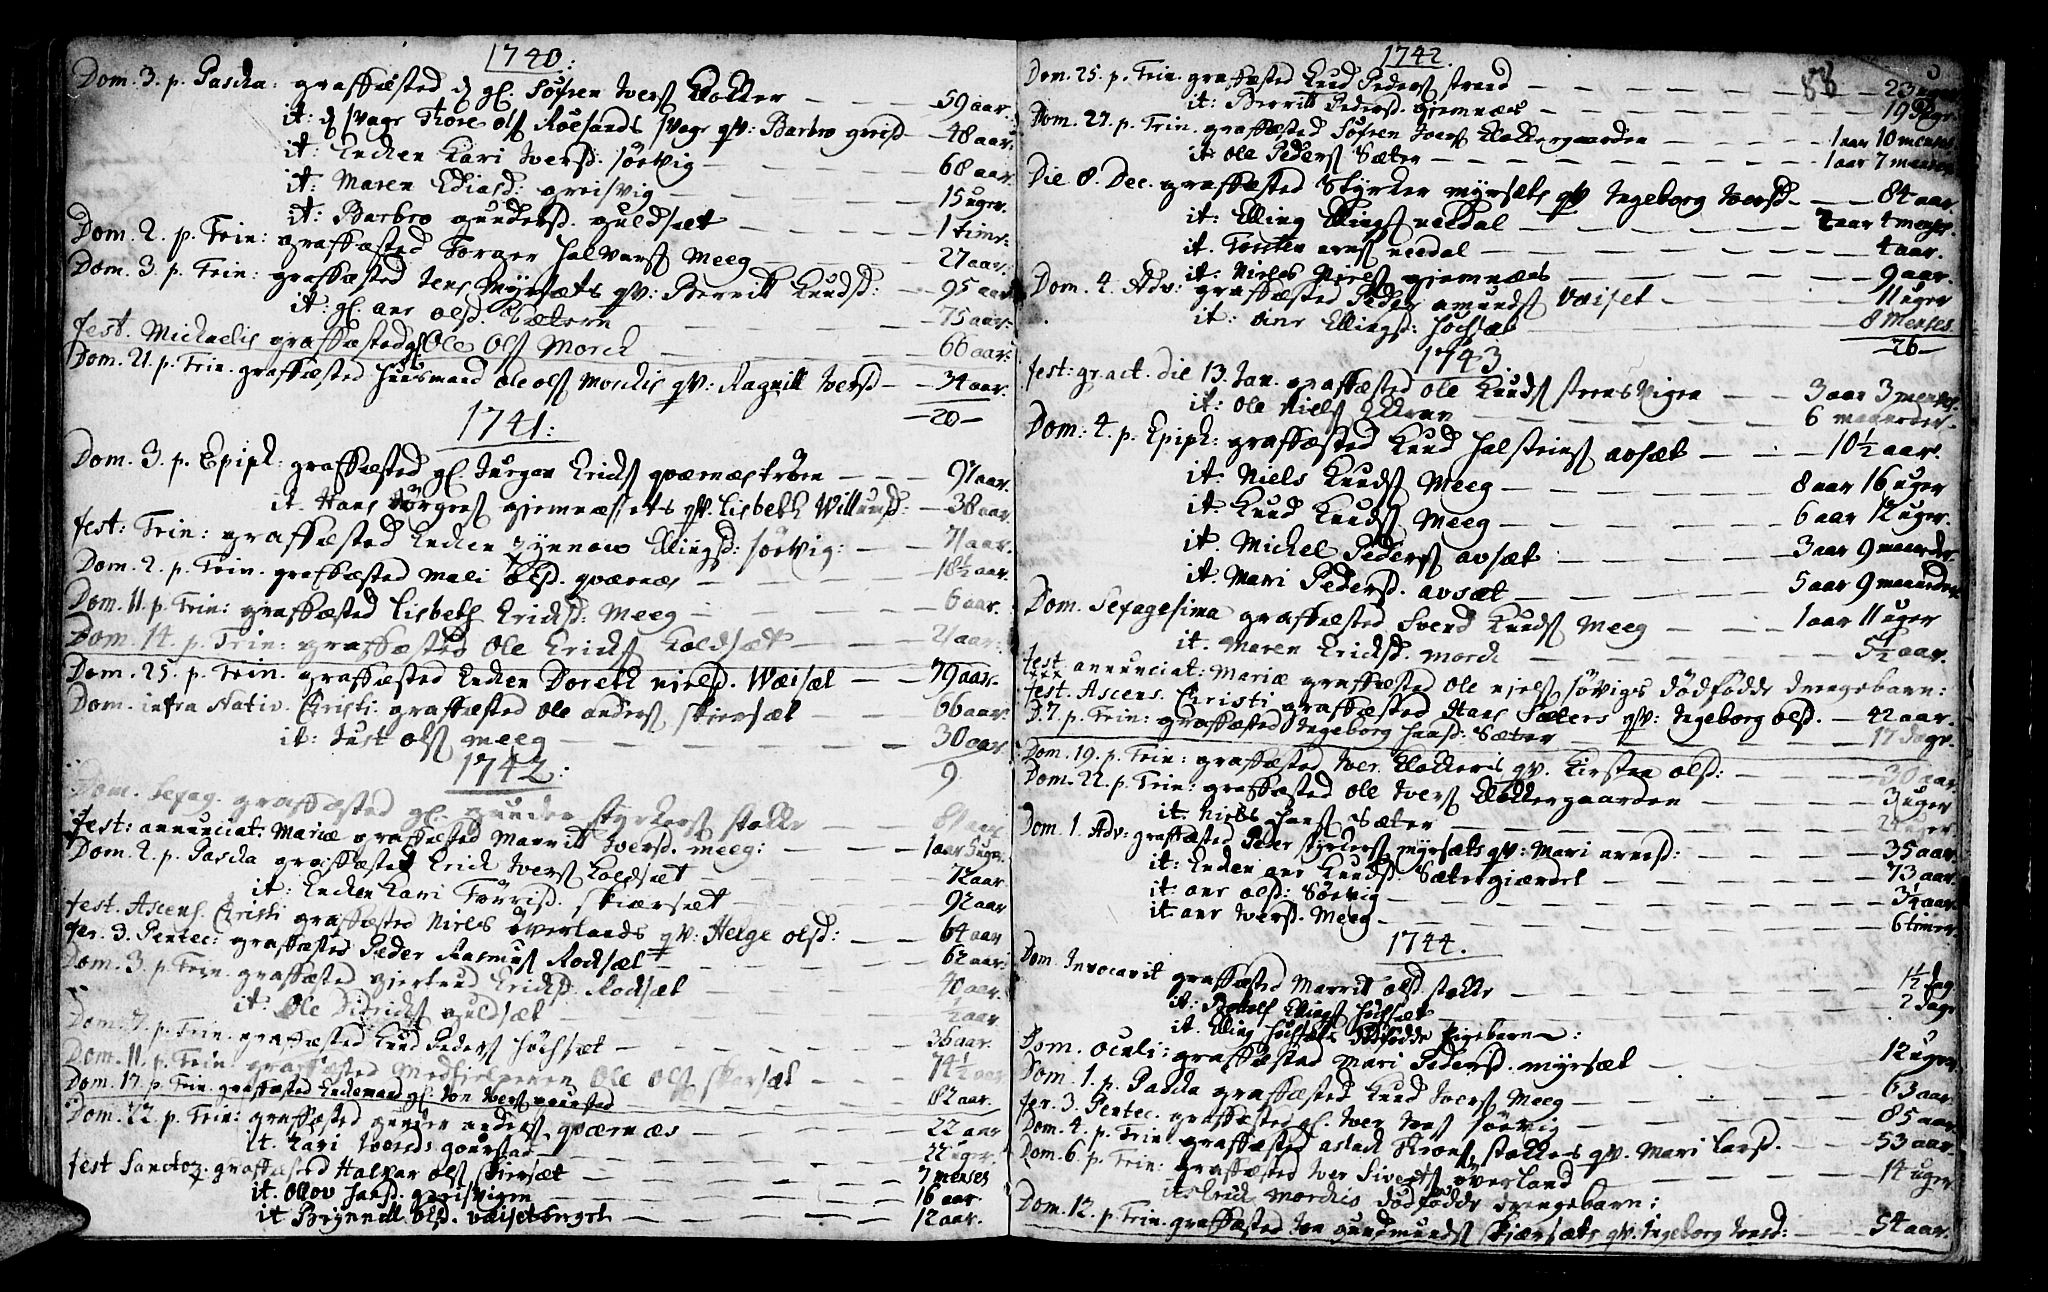 1740:
Dom. 3. p. Pascha: graffæsted d gl. Søfren Ivers Klokker — — — 59 aar.
it: d svage Thore ols Røesands svage qv: Barbro greisd — 48 aar.
it: Enchen Kari Iversd: Sørvig — — — 68 aar.
it: Maren Ediasd: greisvig — — — 15 uger.
it: Barbro gundersd. guldsæt — — — 1 time.
Dom. 2. p. Trin: graffæsted Torger Halvars Meeg — — — 27 aar.
Dom. 3. p. Trin: graffæsted Jens Myrsæts qv: Berritt Knudsd: — 95 aar
it: gl. ane olsd. Sætern — — 75 aar:
fest. Michaelis graffæsted gl Ole Ols Morch — — — 66 aar:
Dom. 21. p. Trin. graffæsted Huusmand Ole ols Morchs qv: Ragnill Iversd — — 34 aar.
— 20 —
1741:
Dom. 3. p. Epiph: graffæsted gl Jurgen Erichs qværnestrøen — — — 97 aar.
it. Hans Jørgens giemnæsets qv. Lisbeth Willumsd: — 38 aar.
fest: Trin: graffæsted Enchen gynnow Ellingsd: sörvig: — — 71 aar.
Dom. 2. p. Trin. graffæsted Mali olsd. qværnæs — — — 18½ aar.
Dom. 11. p. Trin: graffæsted Lisbeth Erichsd: Meeg — — — 6 aar.
Dom. 14. p. Trin: graffæsted Ole Erichs Koldsæt — — — 21 aar:
Dom. 25. p. Trin. graffæsted Enchen Doreth nielsd. Wæisæt — — 79 aar.
Dom. infra Nativ. Christi: graffæsted Ole anders skiersæt — — — 66 aar.
it: Just ols meeg — — — 30 aar
9
1742:
Dom. Sexag. graffæsted gl. gunder styrkers stokke — — — 81 aar
fest: annunciat: Mariæ graffæsted Marritt Iversd. meeg: — — — 1 aar 5 uger
Dom. 2. p. Pascha graffæsted Erich Ivers Koldsæt — — — 72 aar
it: Enchen Kari Tourisd: skiærsæt — — — 92 aar
fest. Ascens. Christi graffæsted Niels överlands qv: Helge olsd: — — 64 aar
fer. 3. Pentec: graffæsted Peder Rasmus Rodsæt — — — 62 aar:
Dom. 3. p. Trin. graffæsted giertrud Erichsd: Rodsæt — — — 40 aar.
it: Ole Didrichs guldsæt — — — ½ aar
Dom. 7. p. Trin. graffæsted Knud Peders Höchsæt — — — 36 aar.
Dom. 11. p. Trin. graffæsted Medhielperen Ole Ols skarsæt — — 74½ aar
Dom. 17. p. Trin. graffæsted Enchemand gl. Jon Ivers — — — 82 aar.
Dom. 22. p. Trin: graffæsted gunder anders qværnæs — — — 22 aar
it Kari — — — 22 uger.
fest Sanctor. graffæsted Halvar ols skiersæt — — — 7 menses
it. Olov Hansd. greisvigen — — — 16 aar.
it Brynnild olsd. — — — 12 aar.
1742.
88
Dom. 25. p. Trin. graffæsted Knud Peders strand — — — 23 uger
it: Berritt Pedersd. giemnæs — — — 19
Dom. 27. p. Trin. graffæsted Søfren Ivers Klokkergaarden — — — 1 aar 10 menses
it: Ole Peders Sæter — — — 1 aar 7 menses
Die 8. Dec. graffæsted Styrker myrsæts qv Ingeborg Iversd — — — 84 aar.
it: Elling Ellings needal — — — 2 aar 4 menses.
it. Torsten arns needal — — — 4 aar.
it: Niels Niels giemnæs — — — 9 aar.
Dom. 4. Adv: graffæsted Peder amunds Væiset — — — 11 uger
it: ane Ellingsd: höchsæt — — — 8 Menses
— 26 —
1743.
fest: gr. act. die 13. Jan. graffæsted Ole Knuds steensvigen — — 3 aar 3 menses.
it: Ole Niels — — — 6 maander.
Dom: 4. p. Epiph: graffæsted Knud Halsteins avsæt — — — 10½ aar.
it: Niels Knuds Meeg — — — 8 aar 16 uger
it Knud Knuds Meeg — — — 6 aar 12 uger.
it. Michel Peders avsæt — — — 3 aar 9 maander
it. Mari Pedersd. avsæt — — — 5 aar 9 maander
Dom. Sexagesima graffæsted Svend Knuds Meeg — — — 1 aar 11 uger
it. Maren Erichsd. morch — — — 5½ aar.
fest annunciat: Mariæ graffæsted Ole niels sövigs dödfödde drengebarn:
fest. Ascens. Christi graffæsted Hans Sæters qv: Ingeborg olsd. — 42 aar.
D. 7. p. Trin: graffæsted Ingeborg Hansd: Sæter — — — 17 dage.
Dom. 19. p. Trin: graffæsted Iver Klokkeris qv. Kirsten olsd: — — — 30 aar
Dom. 22. p. Trin: graffæsted Ole Ivers Klokkergaarden — — — 3 uger
it. Niels Hans Sæter — — — uger
Dom. 1. Adv: graffæsted Peder styrkers myrsæts qv: Mari arnesd: — — — 35 aar
it: Enchen ane Knudsd: Sætergiærdet — — — 73 aar.
it: ane olsd: Sörvig — — — 3¼ aar.
it. ane Iversd. Meeg — — — 6 timer.
1744.
Dom. Invocavit graffæsted Marrit olsd stokke — — — 1½ dag
it: Rodolf Ellings Höchsæt — — — 2 dage
it. Elling Höchsæts Dödfödde Pigebarn:
Dom. Oculi: graffæsted Mari Pedersd. myrsæt — — — 12 uger
Dom. 1. p. Pascha graffæsted Knud Ivers Meeg — — — 63 aar
fer. 3. Pentec. graffæsted gl. Iver Jons sörvig — — — 85 aar
Dom. 4. p. Trin graffæsted aslach Throns stokkes qv. Mari Larsd. — — — 53 aar.
Dom. 6. p. Trin: graffæsted Iver Siverts överland — — — 14 uger
it: Erich Morchs dödfödde drengebarn:
Dom. 12. p. Trin. graffæsted Jon gundmunds skjærsæts qv. Ingeborg Jonsd: — — — 54 aar.